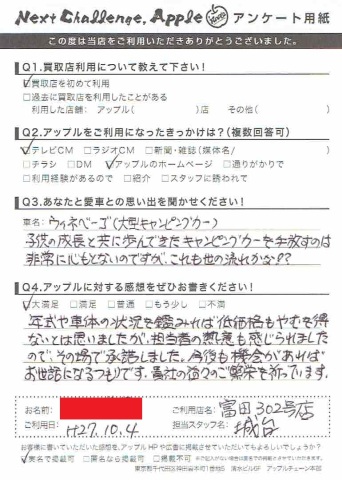 Next Challenge, Apple アンケート用紙
この度は当店をご利用いただきありがとうございました。
Q1.買取店利用について教えて下さい！
☑買取店を初めて利用
□過去に買取店を利用したことがある
利用した店舗： アップル（ ）店 その他（ ）
Q2.アップルをご利用になったきっかけは？（複数回答可）
☑テレビCM □ラジオCM □新聞・雑誌（媒体名/ ）
□チラシ □DM ☑アップルのホームページ □通りがかりで
□利用経験があるので □紹介 □スタッフに誘われて
Q3.あなたと愛車との思い出を聞かせください！
車名：ウィネベーゴ（大型キャンピングカー）
子供の成長と共に歩んできたキャンピングカーを手放すのは
非常に心もとないのですが、これも世の流れかな!?
Q4.アップルに対する感想をぜひお書きください！
☑大満足 □満足 □普通 □もう少し □不満
年式や車体の状況を鑑みれば低価格もやむを得
ないとは思いましたが、担当者の熱意も感じられました
ので、その場で承諾しました。今後も機会があれば
お世話になるつもりです。貴社の益々のご繁栄を祈っています。
お名前： ご利用店名：富田302号店
ご利用日：H27.10.4 担当スタッフ名：
お客様に書いていただいた感想を、アップルHPや広告に掲載させていただいてもよろしいでしょうか？
☑実名で掲載可 □匿名なら掲載可 □掲載不可
東京都千代田区神田 アップルチェーン本部